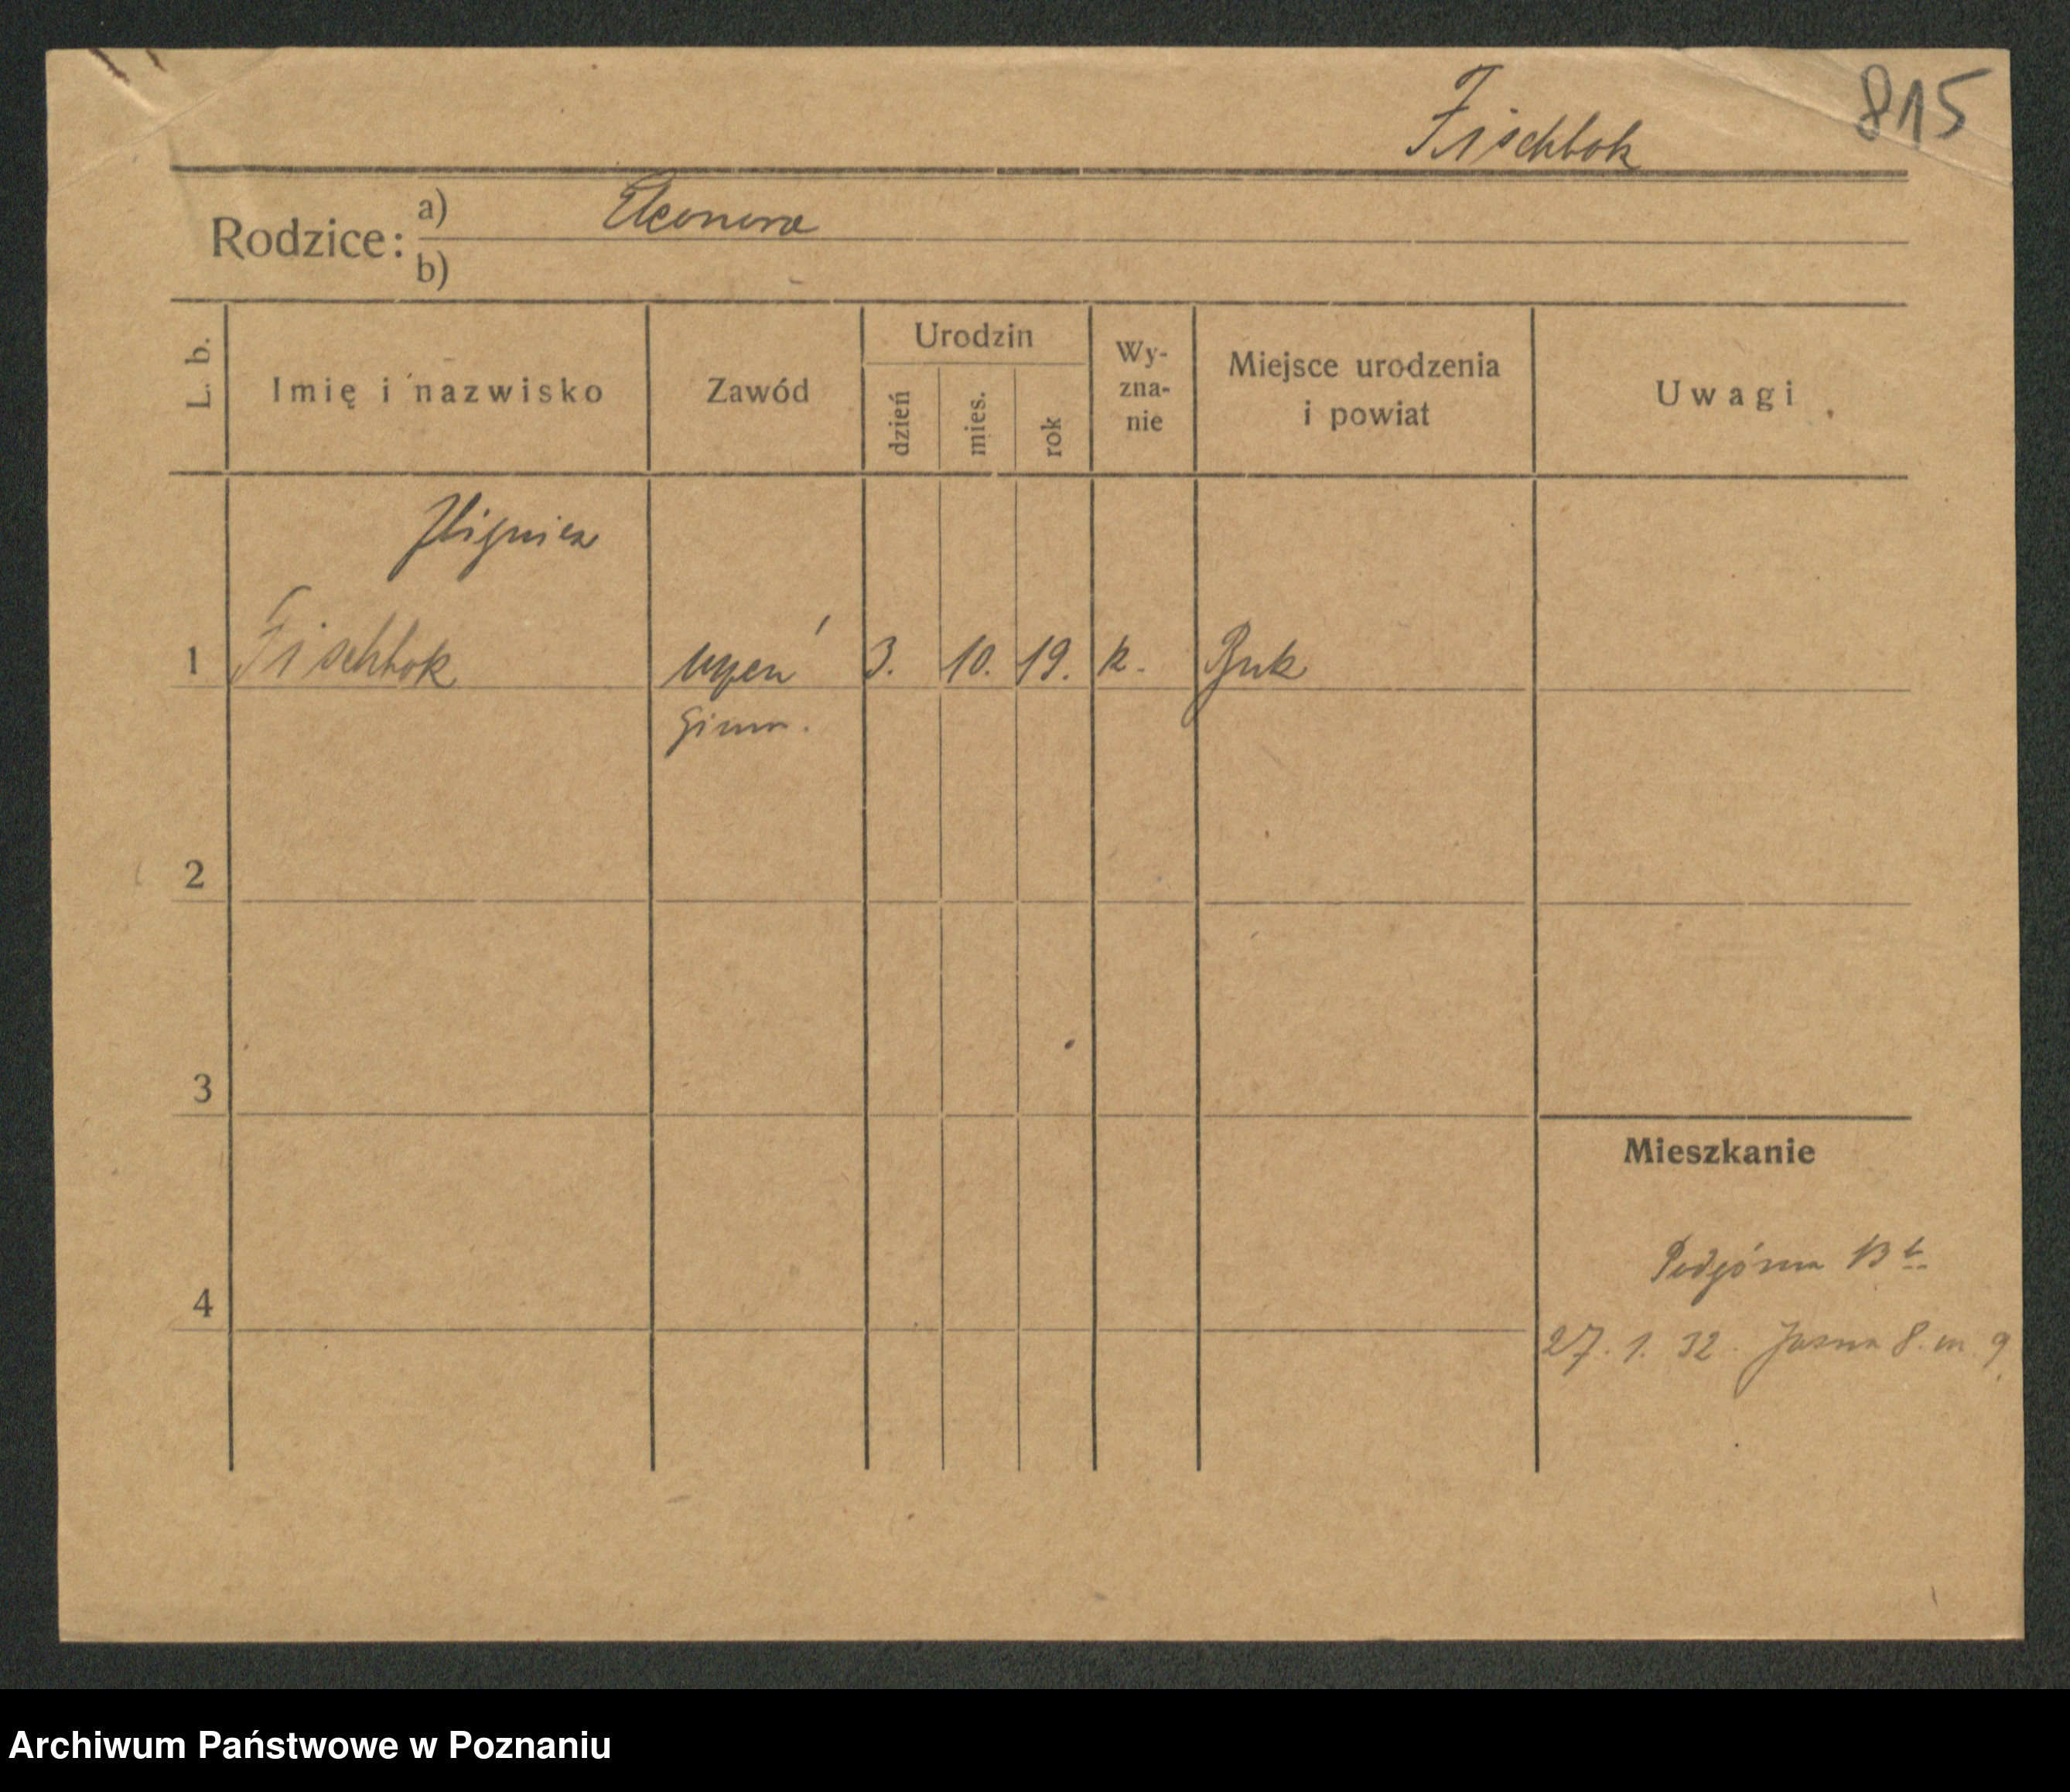 815
Fischbok
Rodzice: a) Eleonora
b)
L. b.
Imię i nazwisko
Zawód
Urodzin
dzień
mies.
rok
Wy-
zna-
nie
Miejsce urodzenia
i powiat
Uwagi
Zbigniew
1 Fischbok uczeń 3. 10. 19. k. Buk
Gimn.
2
3
Mieszkanie
Podgórna 13 b
4
27. 1. 32. Jasna 8. m 9
Archiwum Państwowe w Poznaniu